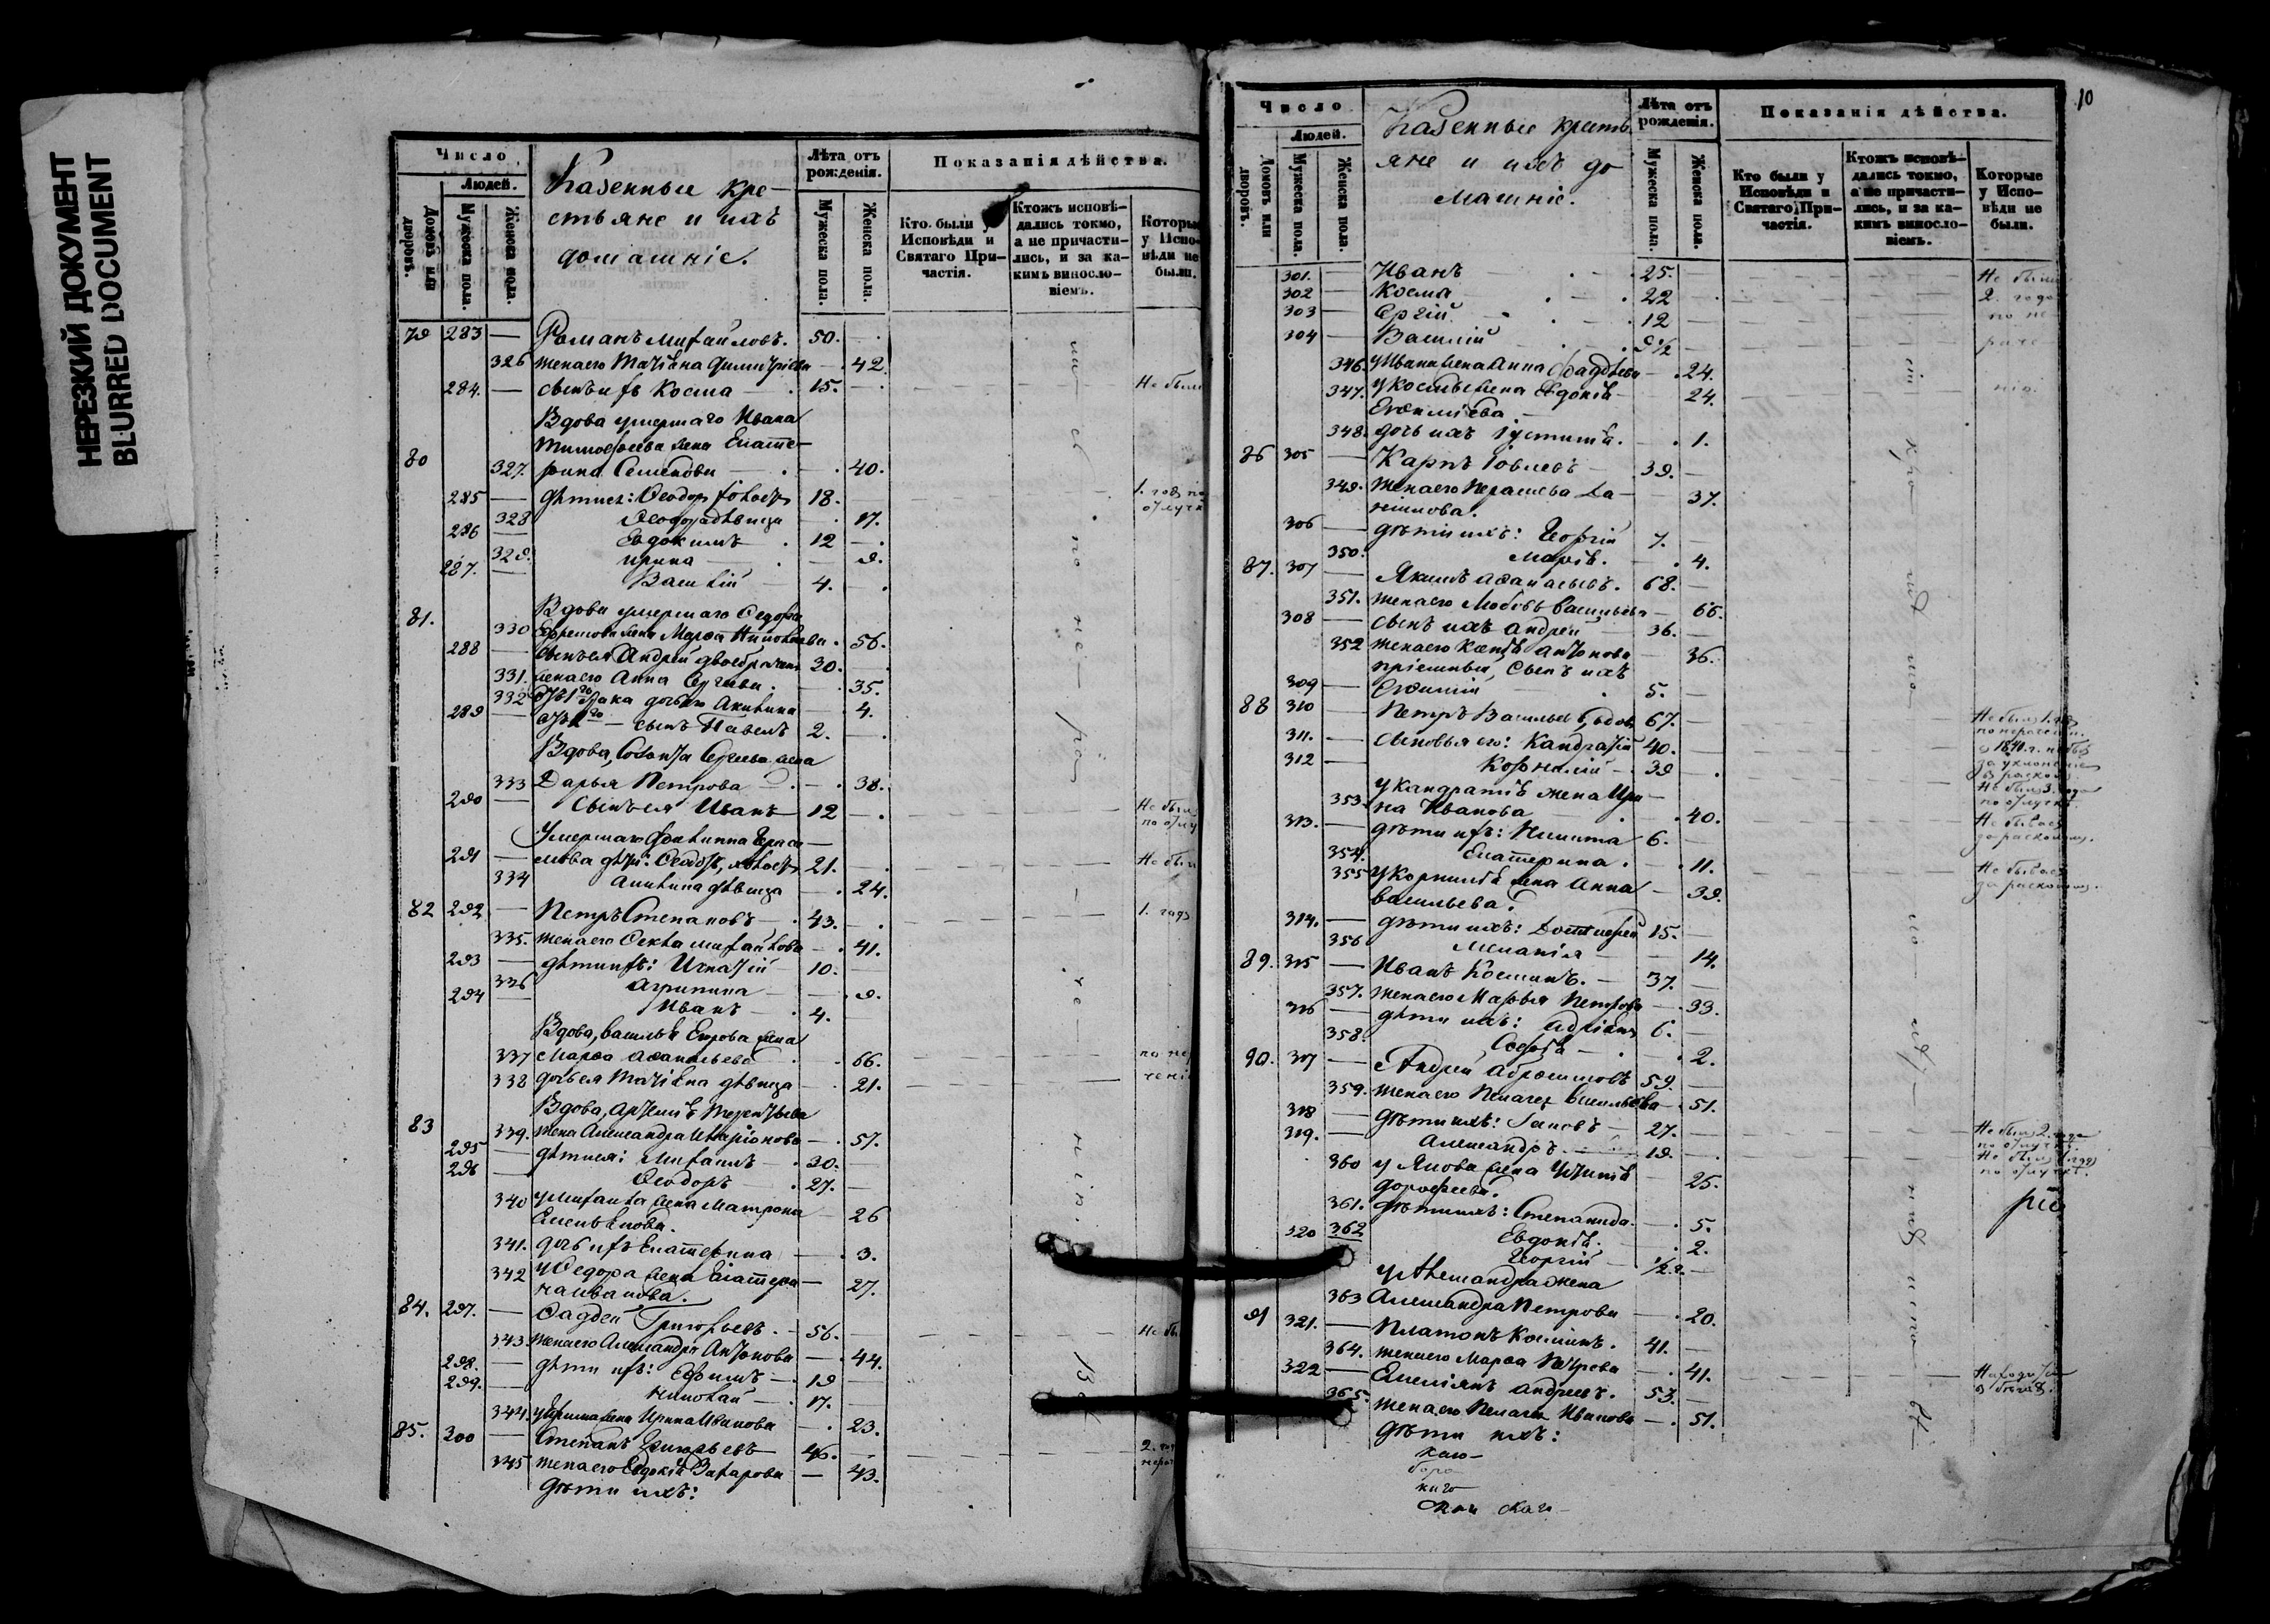 НЕРЕЗКИЙ ДОКУМЕНТ
BLURRED DOCUMENT
Число
Людей.
Домовъ или дворовъ.
Мужеска пола.
Женска пола.
Казенные кре-
стьяне и ихъ
домашніе.
Лѣта отъ рожденія.
Мужеска пола.
Женска пола.
Показанія дѣйства.
Кто были у Исповѣди и Святаго Причастія.
Ктожъ исповѣдались токмо, а не причастились, и за какимъ винословіемъ.
Которые у Исповѣди не были.
79 283 — Романъ Михайловъ. 50.
326 жена его Татіана Димитріева 42.
284. — сынъ ихъ Косма 15. Не был
Вдова умершаго Ивана
Тимофеева жена Екате-
80 327. рина Семенова 40.
285 — дѣти ея: Ѳеодоръ холостъ 18. 1. годъ по
328 Ѳеодора дѣвица 17.
286 — Евдокимъ 12
329. Ирина 9.
287. — Василій 4.
81. Вдова умершаго Ѳедора
330 Ефремова жена Марѳа Николаева 56.
288 — сынъ ея Андрей двоебрачный 30.
331. жена его Анна Сергѣева. 35.
332 отъ 1го брака дочь его Акилина 4.
289 — отъ 2го — сынъ Павелъ 2.
Вдова, Сергѣева жена
333 Дарья Петрова 38.
290 — сынъ ея Иванъ 12 Не был
Умершаго Филиппа Герасимова
291 — дѣти: Ѳеодоръ, холостъ 21. Не был
334 Акилина дѣвица 24.
82 292 — Петръ Степановъ 43. 1. годъ
335. жена его Ѳекла Михайлова 41.
293 — дѣти ихъ: Игнатій 10.
336 Агрипина 9.
294 — Иванъ 4.
Вдова, Василья Егорова жена
337 Марѳа Аѳанасьева 66.
338 дочь ея Татіана дѣвица 21.
Вдова, Артемія Терентьева
83 339. жена Александра Иларіонова 57.
295 — дѣти ея: Михаилъ 30.
296 — Ѳеодоръ 27.
340 у Михаила жена Матрона
Емельянова. 26
341. дочь ихъ Екатерина 3.
342 у Ѳедора жена Екатери-
на Иванова. 27.
84. 297. — Ѳадей Григорьевъ. 56. Не бы
343 жена его Александра Антонова 44.
298. — дѣти ихъ: Ефимъ 19
299. — Николай 17.
344. у Ефима жена Ирина Иванова 23.
85. 300 — Степанъ Григорьевъ 46. 2. го
345 жена его Евдокія Захарова 43.
дѣти ихъ:
10
Число
Людей.
Домовъ или дворовъ.
Мужеска пола.
Женска пола.
Казенные крестья-
яне и ихъ до
машніе.
Лѣта отъ рожденія.
Мужеска пола.
Женска пола.
Показанія дѣйства.
Кто были у Исповѣди и Святаго Причастія.
Ктожъ исповѣдались токмо, а не причастились, и за какимъ винословіемъ.
Которые у Исповѣди не были.
301. — Иванъ 25. Не были
302 — Косма 22 2. года
303 — Сергій 12 по не
304 — Василій 9½ раче
346. у Ивана жена Анна Фаддѣева 24.
347. у Космы жена Евдокія 24. нія.
Евѳимьева
348. дочь ихъ Іустинія. 1.
86 305 — Карпъ Іовлевъ 39.
349. жена его Парасковья Да-
нилова. 37.
306 — дѣти ихъ: Георгій 7.
350. Марія. 4.
87. 307 — Якимъ Аѳанасьевъ. 68.
351. жена его Любовь Васильева 66.
308 — сынъ ихъ Андрей 36.
352 жена его Ксенія Антонова 36.
пріемный, сынъ ихъ
309 — Евѳимій 5.
88 310 — Петръ Васильевъ, вдовъ 67. Не былъ 1. годъ
по нераченію.
311. — сыновья его: Кандратій 40. съ 1840. г. не былъ
за уклоненіе
въ расколъ
312 — Корнилій 39 Не былъ 3. года
по отлучкѣ.
у Кандратія жена Ири-
353. на Иванова 40. Не бывает
за расколомъ.
313. — дѣти ихъ: Никита 6.
354. Екатерина. 11.
355 у Корнилія жена Анна 39. Не бывает
Васильева. за расколомъ.
314. — дѣти ихъ: 15.
356 Меланія 14.
89. 315 — Иванъ Косминъ. 37.
357. жена его Марья Петрова 33.
316 — дѣти ихъ: Адріанъ 6.
358. Софія 2.
90. 317 — Андрей Абрамовъ 59.
359. жена его Пелагея Васильева 51.
318 — дѣти ихъ: Іаковъ 27. Не былъ 2. года
по отлучкѣ.
319. — Александръ 19. Не былъ 1. годъ
по отлучкѣ.
360 у Якова жена Устинія 25.
Дороѳеева.
361. дѣти ихъ: Степанида 5.
362 Евдокія. 2.
320 Георгій ½ г.
у Александра жена
363 Александра Петрова 20.
91 321. — Платонъ Косминъ. 41.
364. жена его Марѳа Петрова 41.
322 — Емеліянъ Андреевъ. 53. Находится
въ бѣгахъ.
365. жена его Пелагея Иванова 51.
дѣти ихъ: